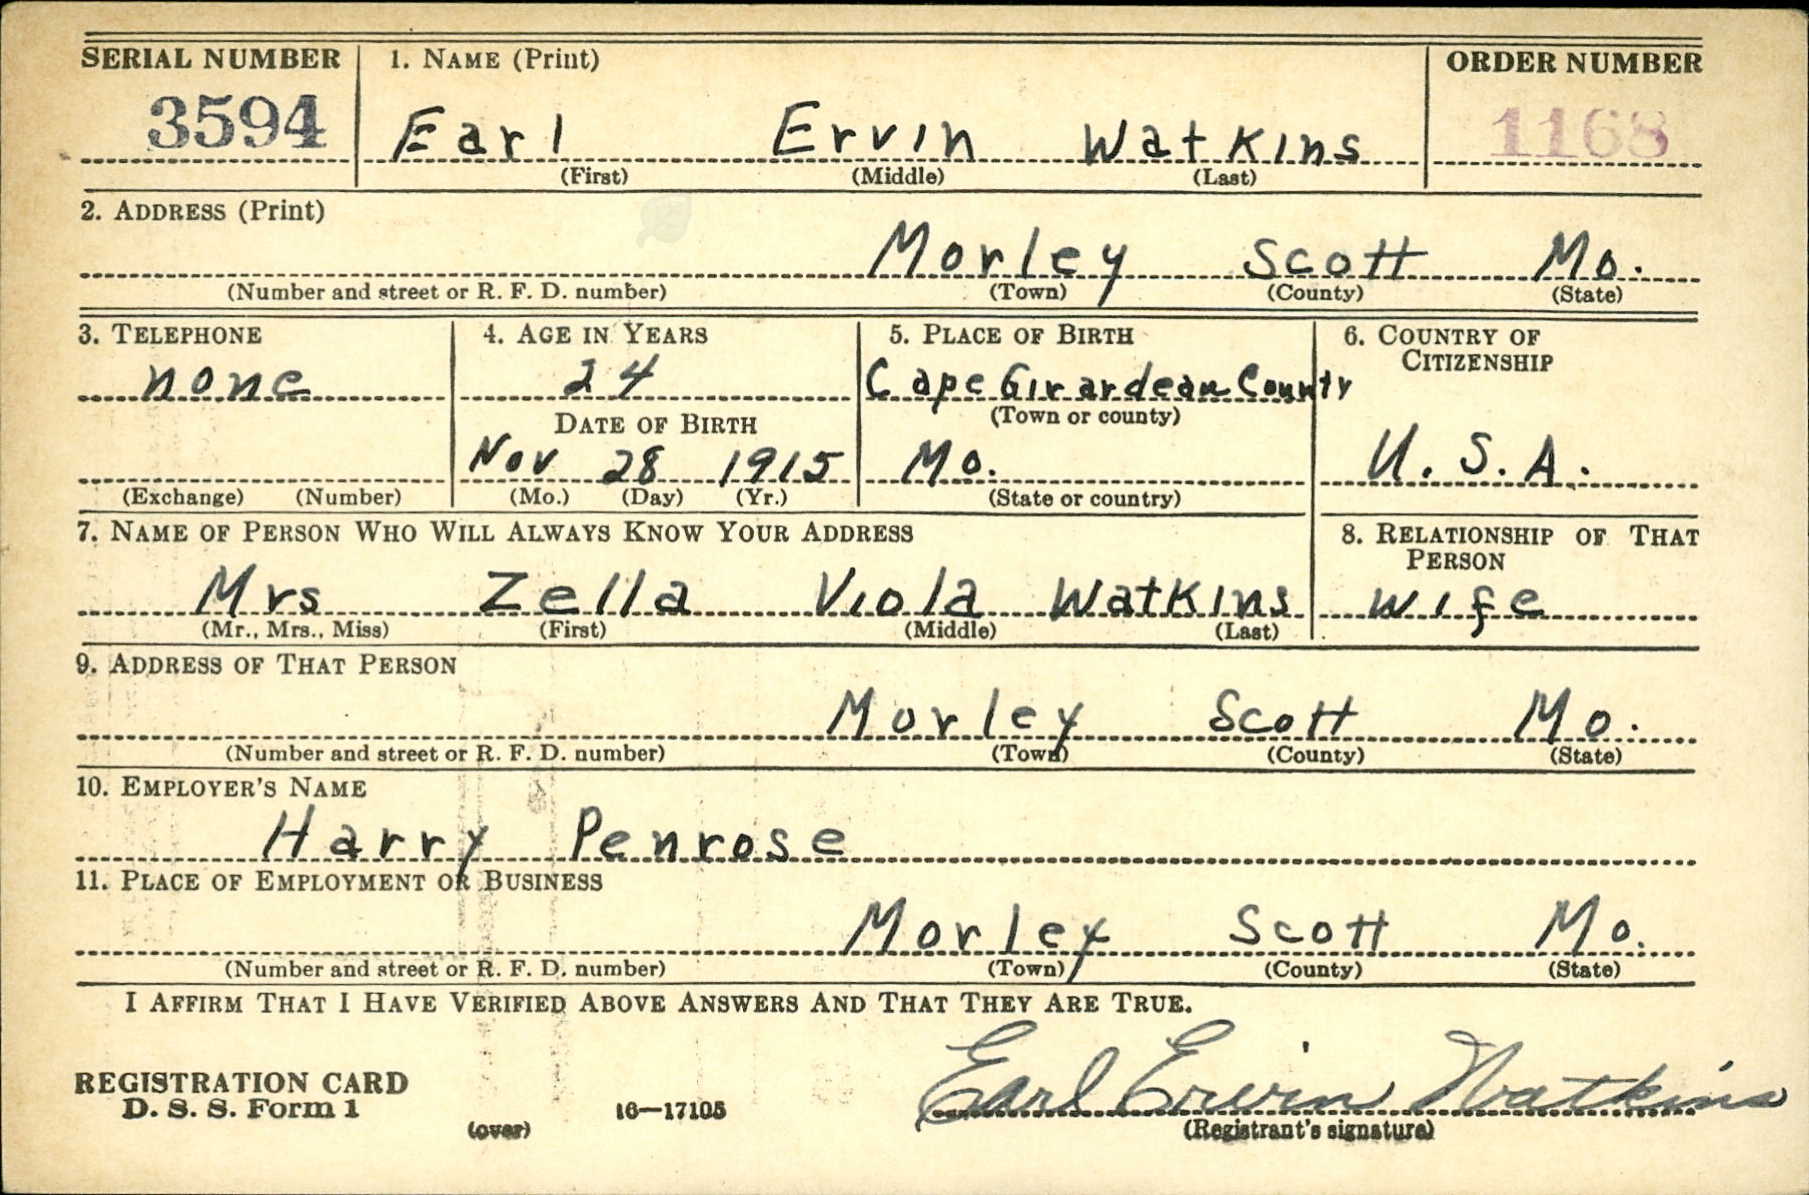 SERIAL NUMBER 1. NAME (Print) ORDER NUMBER
3594 Earl Ervin Watkins 1168
(First) (Middle) (Last)
2. ADDRESS (Print)
Morley Scott Mo.
(Number and street or R. F. D. number) (Town) (County) (State)
3. TELEPHONE 4. AGE IN YEARS 5. PLACE OF BIRTH 6. COUNTRY OF CITIZENSHIP
none 24 Cape Girardeau County
DATE OF BIRTH (Town or county)
Nov 28 1915 Mo. U.S.A.
(Exchange) (Number) (Mo.) (Day) (Yr.) (State or country)
7. NAME OF PERSON WHO WILL ALWAYS KNOW YOUR ADDRESS 8. RELATIONSHIP OF THAT PERSON
Mrs Zella Viola Watkins wife
(Mr., Mrs., Miss) (First) (Middle) (Last)
9. ADDRESS OF THAT PERSON
Morley Scott Mo.
(Number and street or R. F. D. number) (Town) (County) (State)
10. EMPLOYER'S NAME
Harry Penrose
11. PLACE OF EMPLOYMENT OR BUSINESS
Morley Scott Mo.
(Number and street or R. F. D. number) (Town) (County) (State)
I AFFIRM THAT I HAVE VERIFIED ABOVE ANSWERS AND THAT THEY ARE TRUE.
REGISTRATION CARD
D. S. S. Form 1 16—17105 Earl Ervin Watkins
(over) (Registrant's signature)